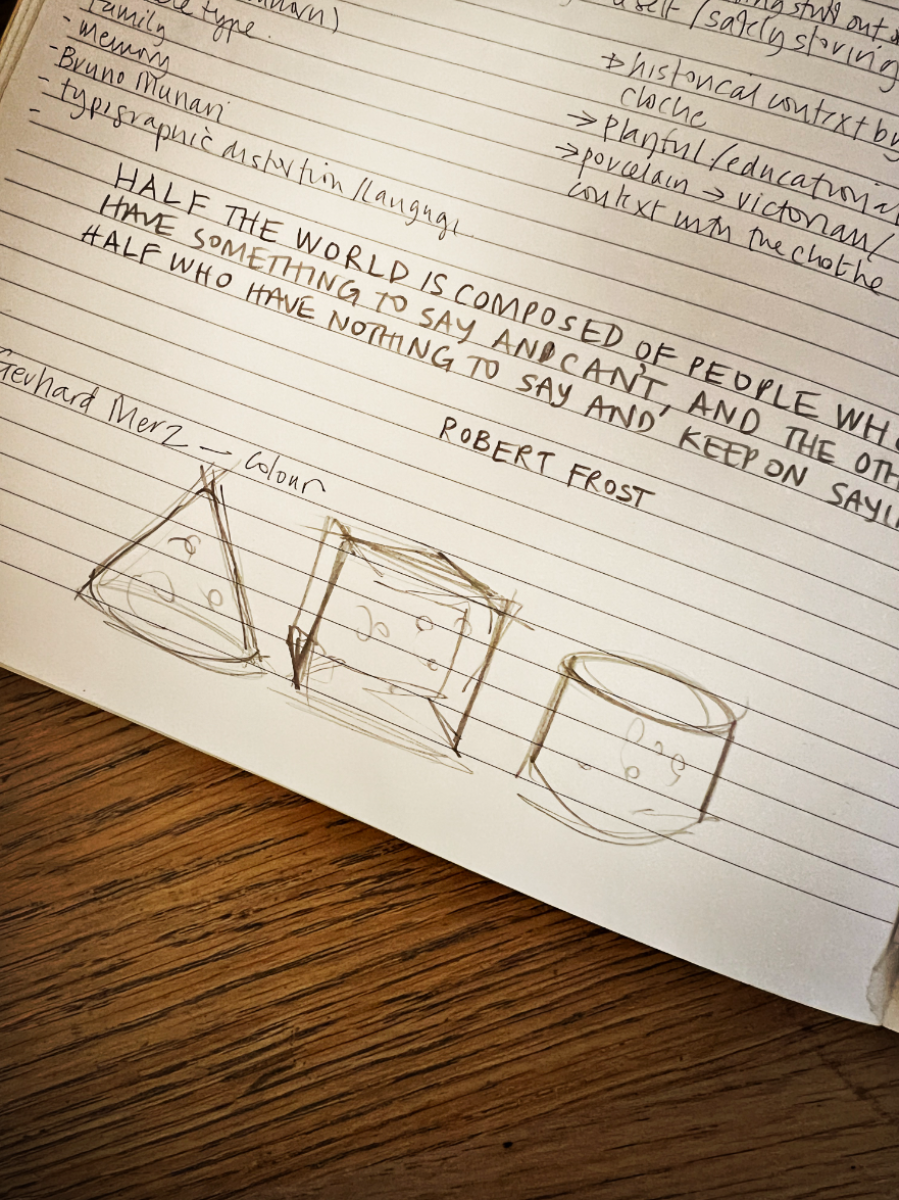 type
Family
- memory
- Bruno Munari
- typigraphic distortion / langugr
-
self / safely storing
stuff out
→ historical contrxt by
cloche
→ Playful / educational
→ porcelain → victorian /
context with the chothe
HALF THE WORLD IS COMPOSED OF PEOPLE WHO
HAVE SOMETHING TO SAY AND CAN'T, AND THE OTH
HALF WHO HAVE NOTHING TO SAY AND KEEP ON SAYI
ROBERT FROST
Gerhard Merz — Colour